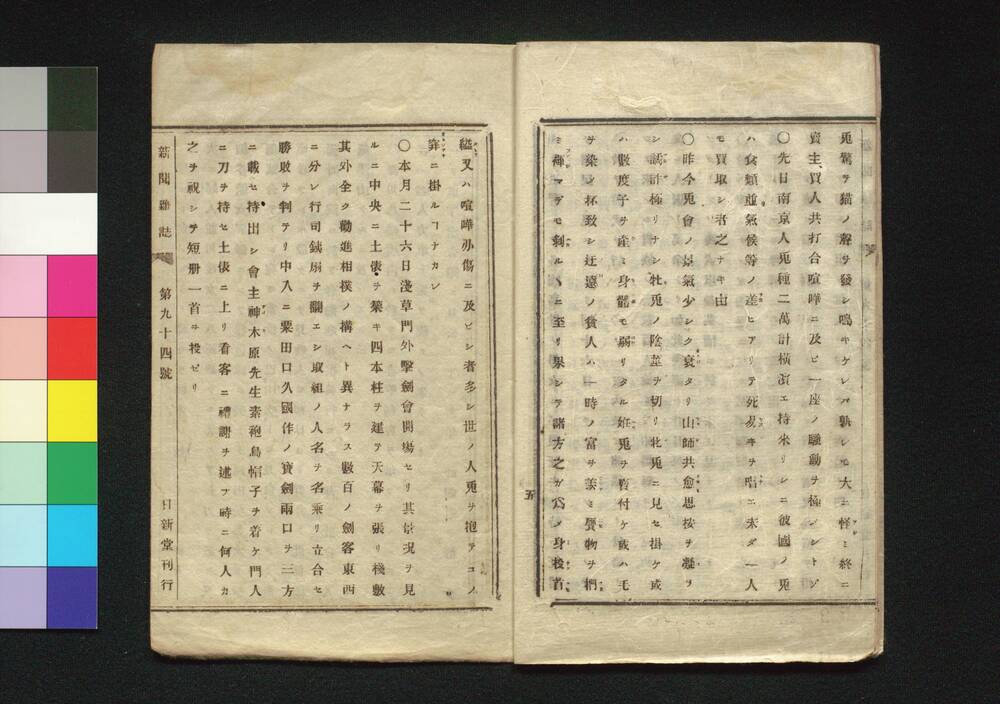 兎驚ヲ猫ノ聲ヲ發シ鳴キケレバ孰レモ大ニ怪ミ終ニ
賣主、買人共打合喧嘩ニ及ビ一座ノ騷動ヲ極メシトゾ
〇先日南京人兎種二萬計橫濵エ持來リシニ彼國ノ兎
ハ食類並氣候等ノ差ヒアリテ死易キヲ唱ニ未ダ一人
モ買取シ者之ナキ由
〇昨今兎會ノ景氣少シク衰タリ山師共愈思按ヲ凝ヲ
シ譎計極リナシ牝兎ノ陰莖ヲ切リ牝兎ニ見セ掛ケ或
ハ數度子ヲ產ミ身體モ弱リタル姙兎ヲ賣付ケ或ハ毛
ヲ染メ杯致シ迂遠ノ貧人ハ一時ノ富ヲ羨ミ質物ヲ
ミ褌マデモ剝ルヽニ至リ果シテ諸方之ガ爲メ身投首
縊又ハ喧嘩刅傷ニ及ビシ者多シ世ノ人兎ヲ抱テコノ
穽ニ掛ルコナカレ
〇本月二十六日淺草門外擊劍會開塲セリ其景况ヲ見
ルニ中央ニ土俵ヲ築キ四本柱ヲ建テ天幕ヲ張リ棧敷
其外全ク勸進相撲ノ搆ヘト異ナラス數百ノ劍客東西
ニ分レ行司銕扇ヲ飜エシ取組ノ人名ヲ名乘リ立合セ
勝敗ヲ判テリ中入ニ粟田口久國作ノ寳劍兩口ヲ三方
ニ載セ持出シ會主神木原先生素袍烏帽子ヲ着ケ門人
ニ刀ヲ持セ土俵ニ上リ看客ニ禮謝ヲ述フ時ニ何人カ
之ヲ祝シテ短册一首ヲ投ゼリ
新聞雜誌 第九十四號 日新堂刊行
五